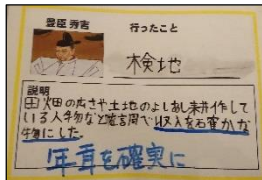 豊臣 秀吉
行ったこと
検地
説明
田畑の広さや土地のよしあし耕作して
いる人物など
収入を石確かな
物にした。
年貢を確実に